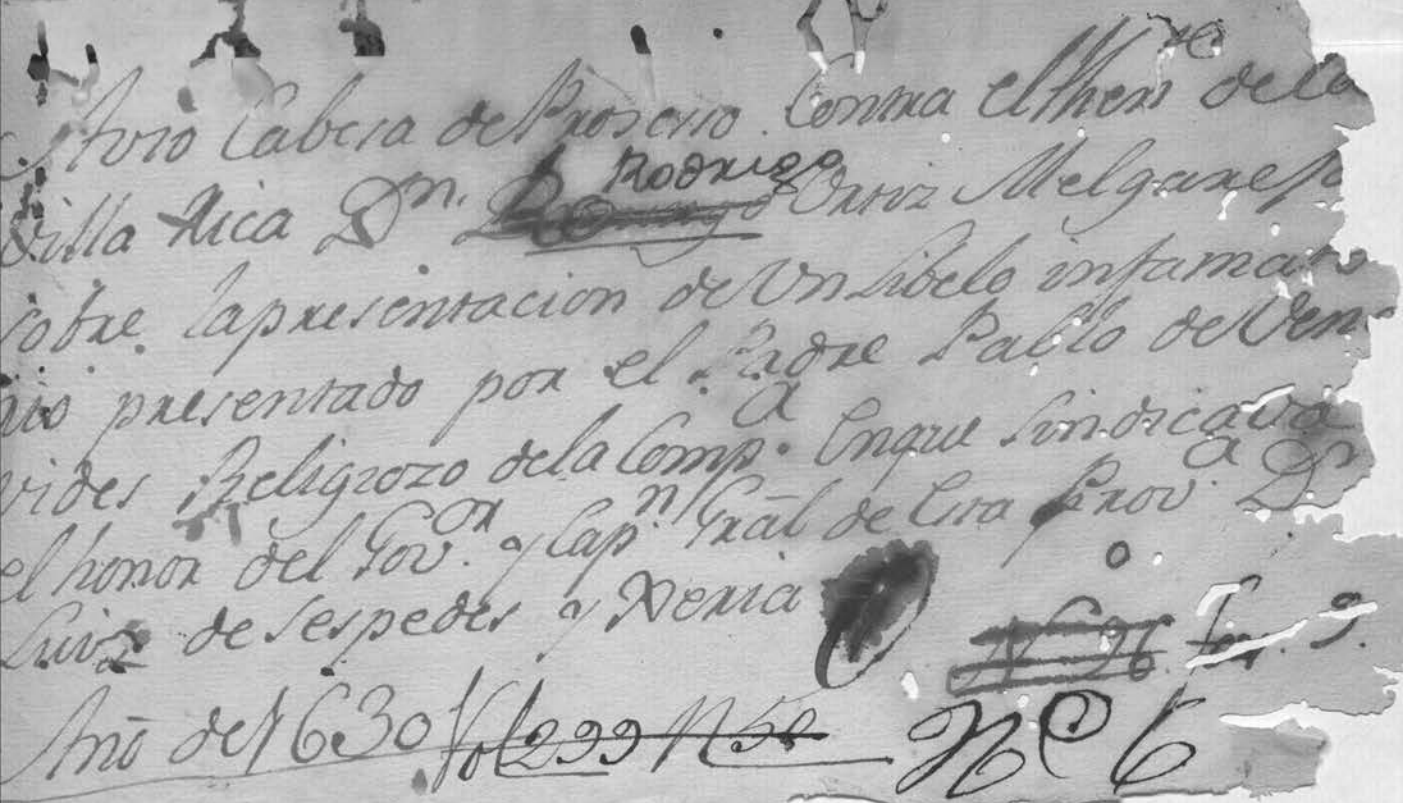 Auto Cabesa de Proserio Contra el Then.te de la
Villa Rica D.n Rodrigo Ortiz Melgarejo
sobre la presentacion de Un Libelo infamato
rio presentado por el Padre Pablo de Vena
vides Religiozo de la Comp.a Enque sindicava
el honor del Gov.or y Cap.n Grāl de Esta Prov.a Dn
Luiz de Sespedes y Xeria
Año de 1630 Vol 299 N 5
N.o 6